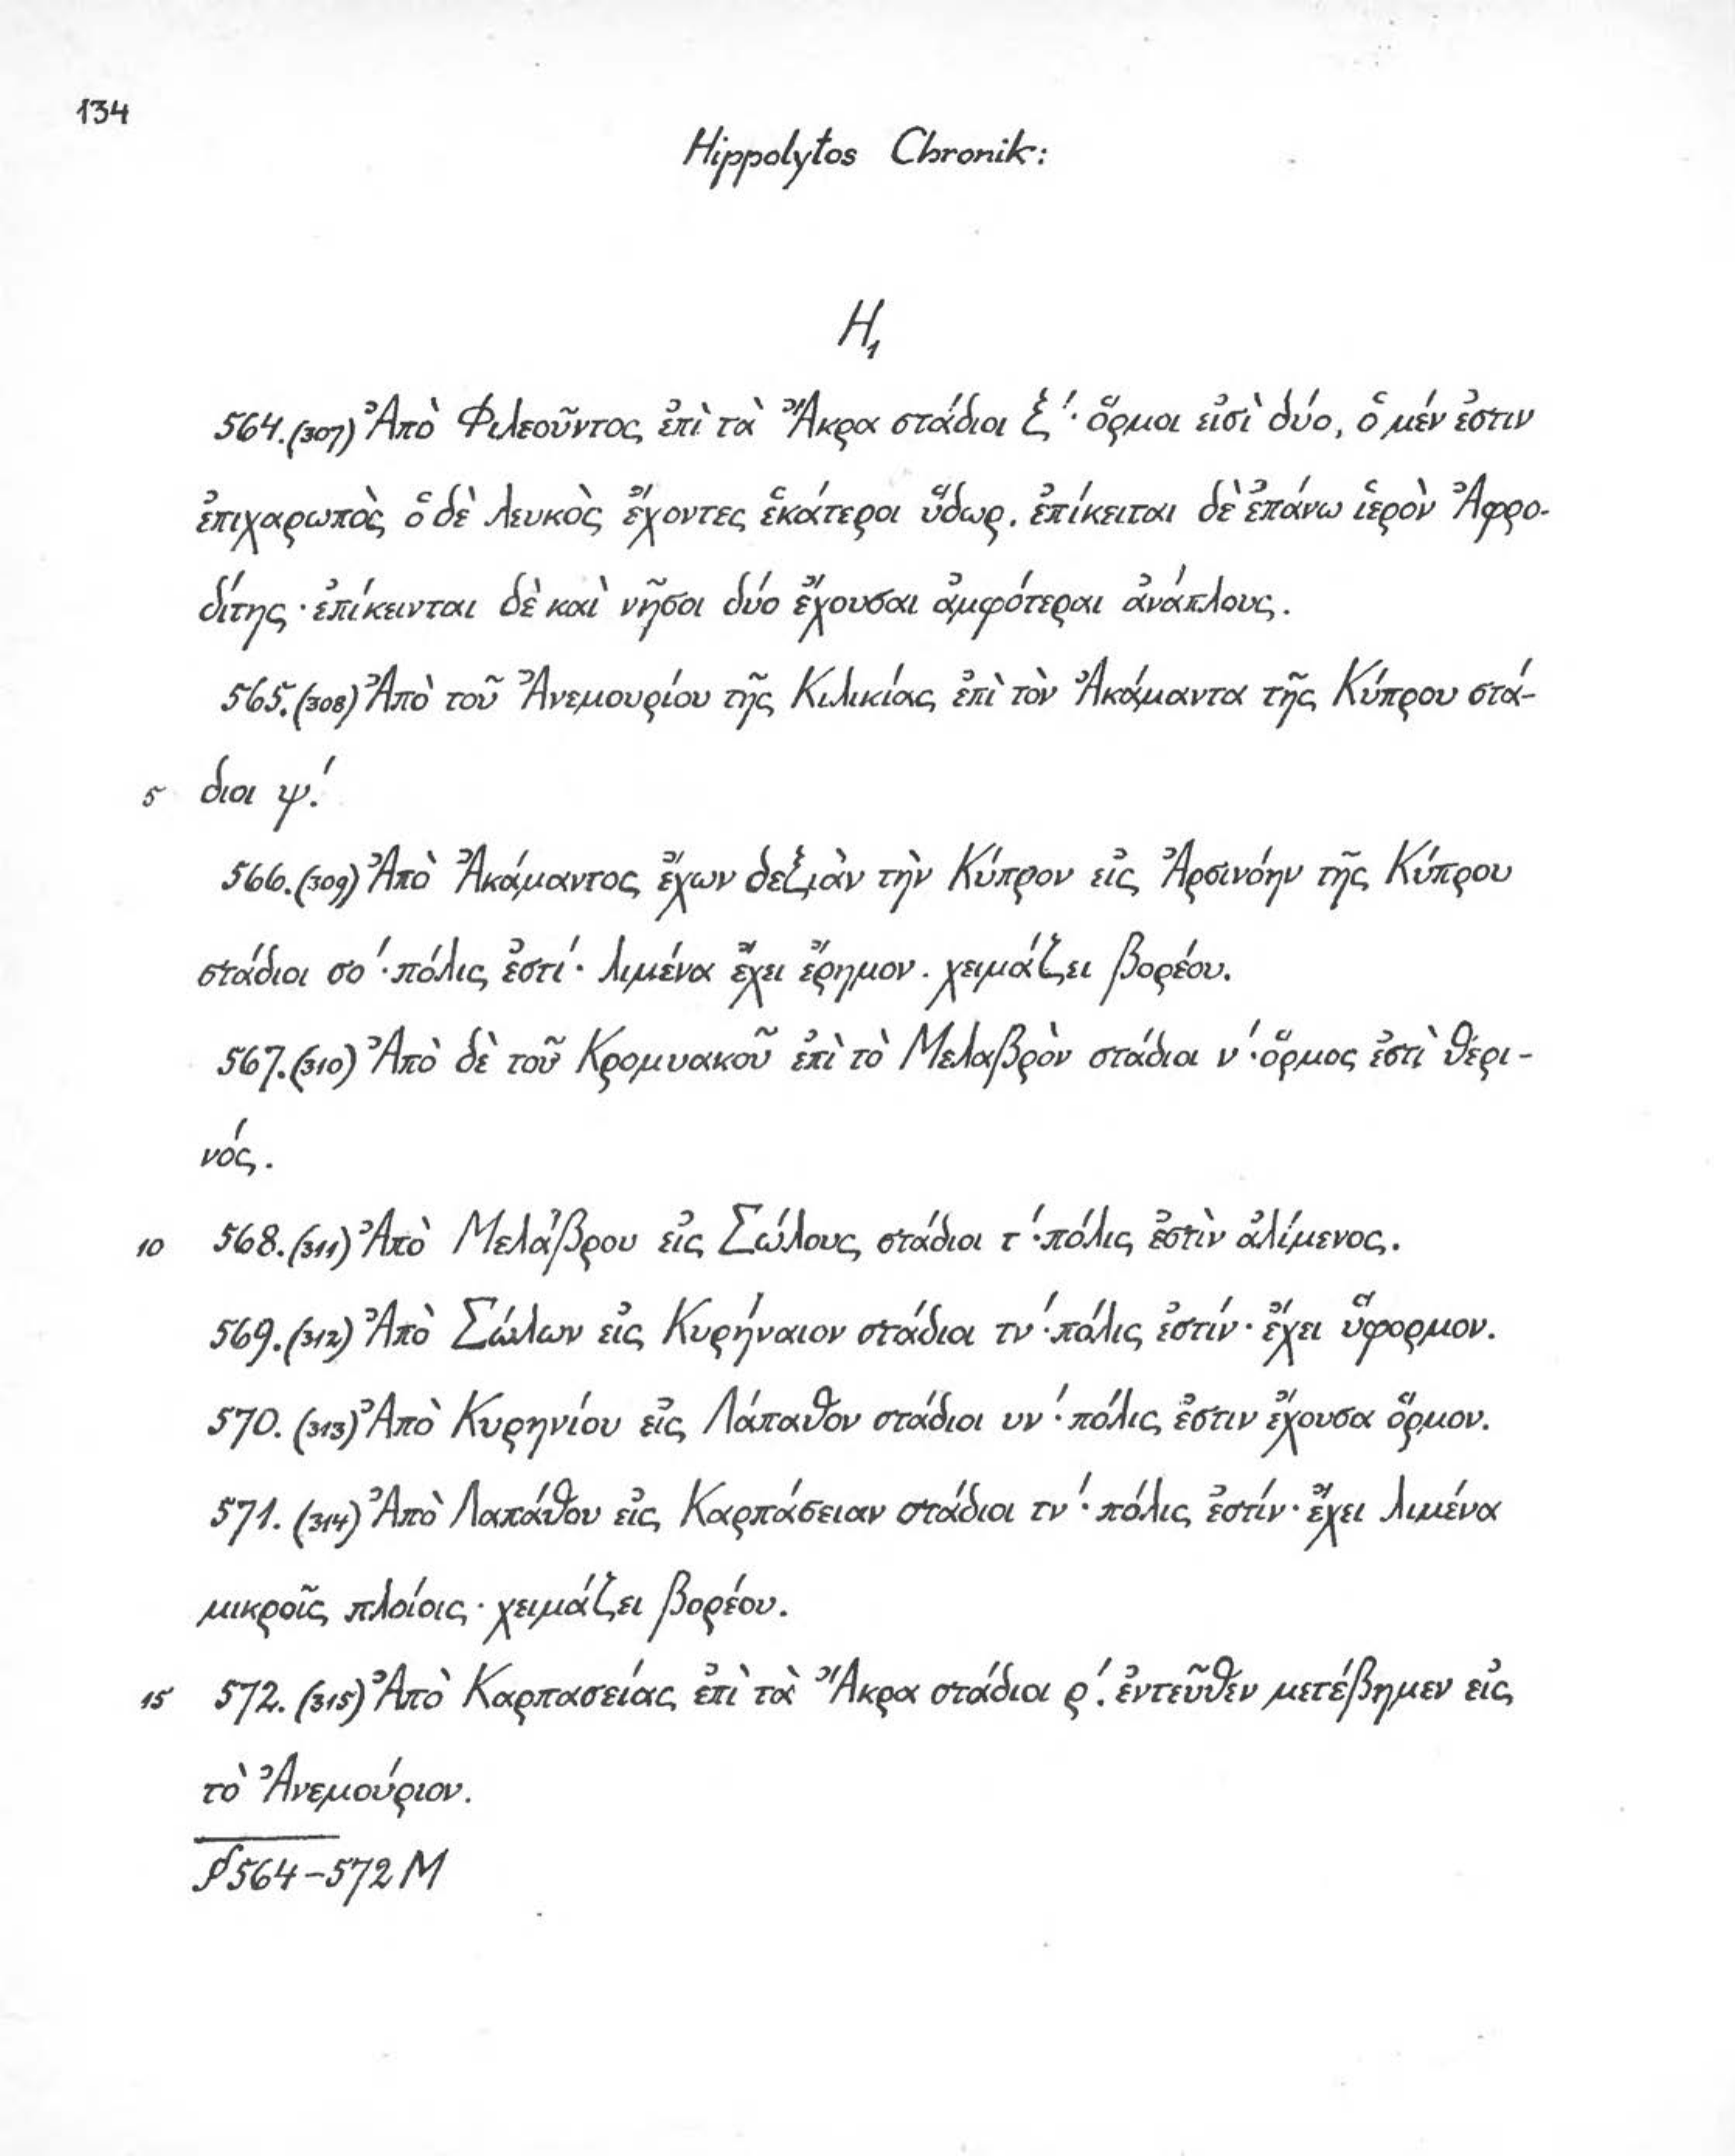 134
Hippolytos Chronik:
H₁
564.(307) Ἀπὸ Φιλεοῦντος ἐπὶ τὰ Ἄκρα στάδιοι ξʹ· ὅρμοι εἰσὶ δύο, ὁ μέν ἐστιν
ἐπιχαρωπὸς ὁ δὲ λευκὸς ἔχοντες ἑκάτεροι ὕδωρ. ἐπίκειται δὲ ἐπάνω ἱερὸν Ἀφρο-
δίτης· ἐπίκεινται δὲ καὶ νῆσοι δύο ἔχουσαι ἀμφότεραι ἀνάπλους.
565.(308) Ἀπὸ τοῦ Ἀνεμουρίου τῆς Κιλικίας ἐπὶ τὸν Ἀκάμαντα τῆς Κύπρου στά-
5 διοι ψʹ.
566.(309) Ἀπὸ Ἀκάμαντος ἔχων δεξιὰν τὴν Κύπρον εἰς Ἀρσινόην τῆς Κύπρου
στάδιοι σοʹ· πόλις ἐστί· λιμένα ἔχει ἔρημον. χειμάζει βορέου.
567.(310) Ἀπὸ δὲ τοῦ Κρομυακοῦ ἐπὶ τὸ Μελαβρὸν στάδιοι νʹ· ὅρμος ἐστὶ θερι-
νός.
10 568.(311) Ἀπὸ Μελάβρου εἰς Σώλους στάδιοι τʹ· πόλις ἐστὶν ἀλίμενος.
569.(312) Ἀπὸ Σώλων εἰς Κυρήναιον στάδιοι τνʹ· πόλις ἐστίν· ἔχει ὕφορμον.
570. (313) Ἀπὸ Κυρηνίου εἰς Λάπαθον στάδιοι υνʹ· πόλις ἐστιν ἔχουσα ὅρμον.
571. (314) Ἀπὸ Λαπάθου εἰς Καρπάσειαν στάδιοι τνʹ· πόλις ἐστίν· ἔχει λιμένα
μικροῖς πλοίοις· χειμάζει βορέου.
15 572. (315) Ἀπὸ Καρπασείας ἐπὶ τὰ Ἄκρα στάδιοι ρʹ. ἐντεῦθεν μετέβημεν εἰς
τὸ Ἀνεμούριον.
§ 564–572 M